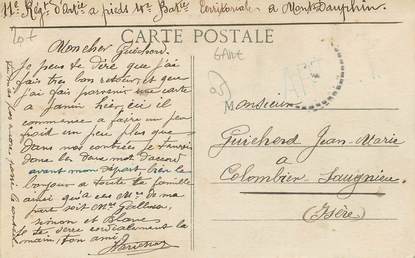 11e Régt d'Artie a pieds 4e Batie Territoriale a Mont Dauphin
CARTE POSTALE
Mon cher Guicherd
Je peux te dire que j'ai
fais très bon retour et que
j'ai fais parvenir une carte
a Janin hier, ici il
commence a faire un peu
froid un peu plus que
dans nos contrées je termine
donc les deux mot d'accord
avant mon départ bien le
bonjour a toute ta famille
ainsi qu'a ces Mrs de ma
part soit Mrs
Simon et Blanc
Je te serre cordialement la
main, ton ami
Monsieur
Guicherd Jean-Marie
a
Colombier Saugnieu
(Isère)